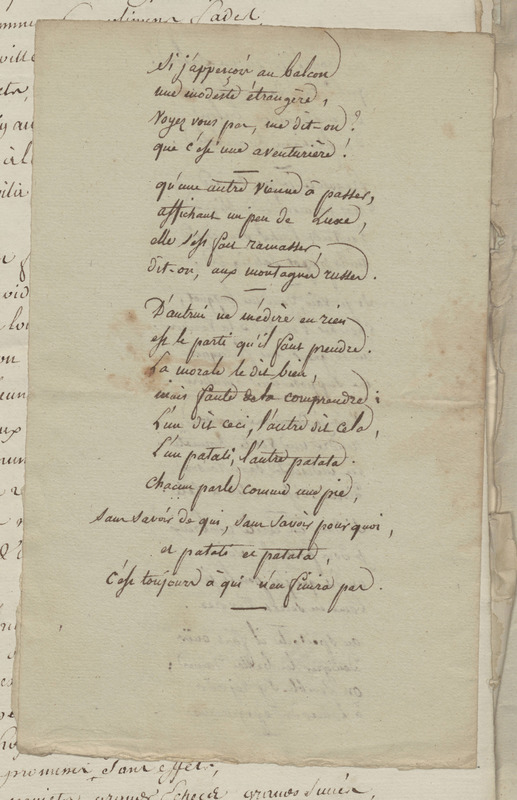 Si j'apperçois au balcon
une modeste étrangère,
Voyez vous pas, me dit-on?
que c'est une aventurière!
qu'une autre vienne à passer,
affichant un peu de Luxe,
elle s'est fait ramasser,
dit-on, aux montagnes russes.
D'autrui ne médire en rien
est le parti qu'il faut prendre.
La morale le dit bien,
mais faute de la comprendre:
L'un dit ceci, l'autre dit cela,
L'un patati, l'autre patata.
chacun parle comme une pie,
sans savoir de qui, sans savoir pourquoi,
et patati et patata,
c'est toujours à qui n'en finira pas.
promener sans effets,